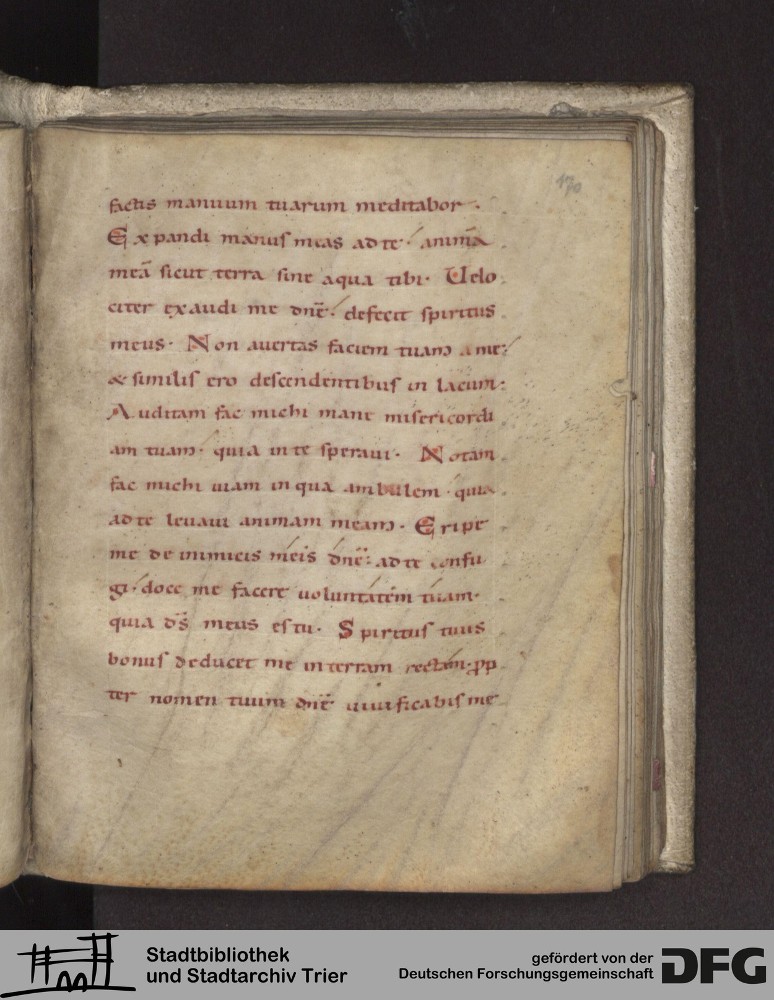 170
factis manuum tuarum meditabor.
Expandi manus meas ad te. anim̄a
meā sicut terra sine aqua tibi. Uelo
citer exaudi me dnē. defecit spiritus
meus. Non auertas faciem tuam a me.
& similis ero descendentibus in lacum:
Auditam fac michi mane misericordi
am tuam. quia in te speraui. Notam
fac michi uiam in qua ambulem. quia
ad te leuaui animam meam. Eripe
me de inimicis meis dnē: ad te confu
gi. doce me facere uoluntatem tuam.
quia ds̄ meus es tu. Spiritus tuus
bonus deducet me in terram rectam. pp
ter nomen tuum dnē uiuificabis me
Stadtbibliothek
und Stadtarchiv Trier
gefördert von der
Deutschen Forschungsgemeinschaft
DFG